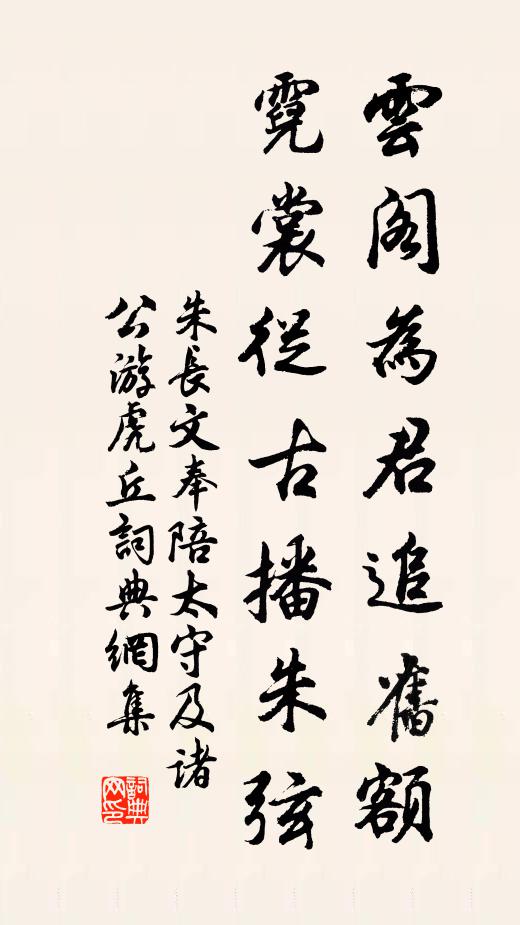 雲閣為君追舊額
霓裳從古播朱弦
朱長文奉陪太守及諸
公游虎丘詞典網集
詞典
网印